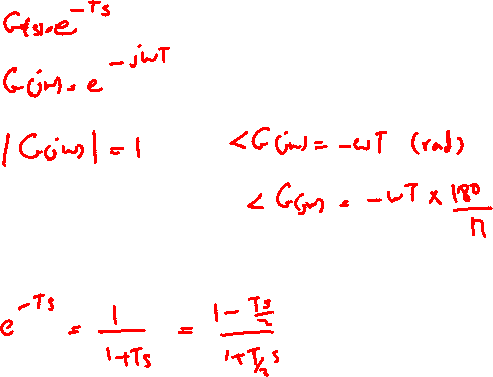 G(s)=e^{-Ts}
G(jω)=e^{-jωT}
|G(jω)|=1 <G(jω)=-ωT (rad)
<G(jω)=-ωT×\frac{180}{π}
e^{-Ts}=\frac{1}{1+Ts}=\frac{1-\frac{Ts}{2}}{1+T/2 s}